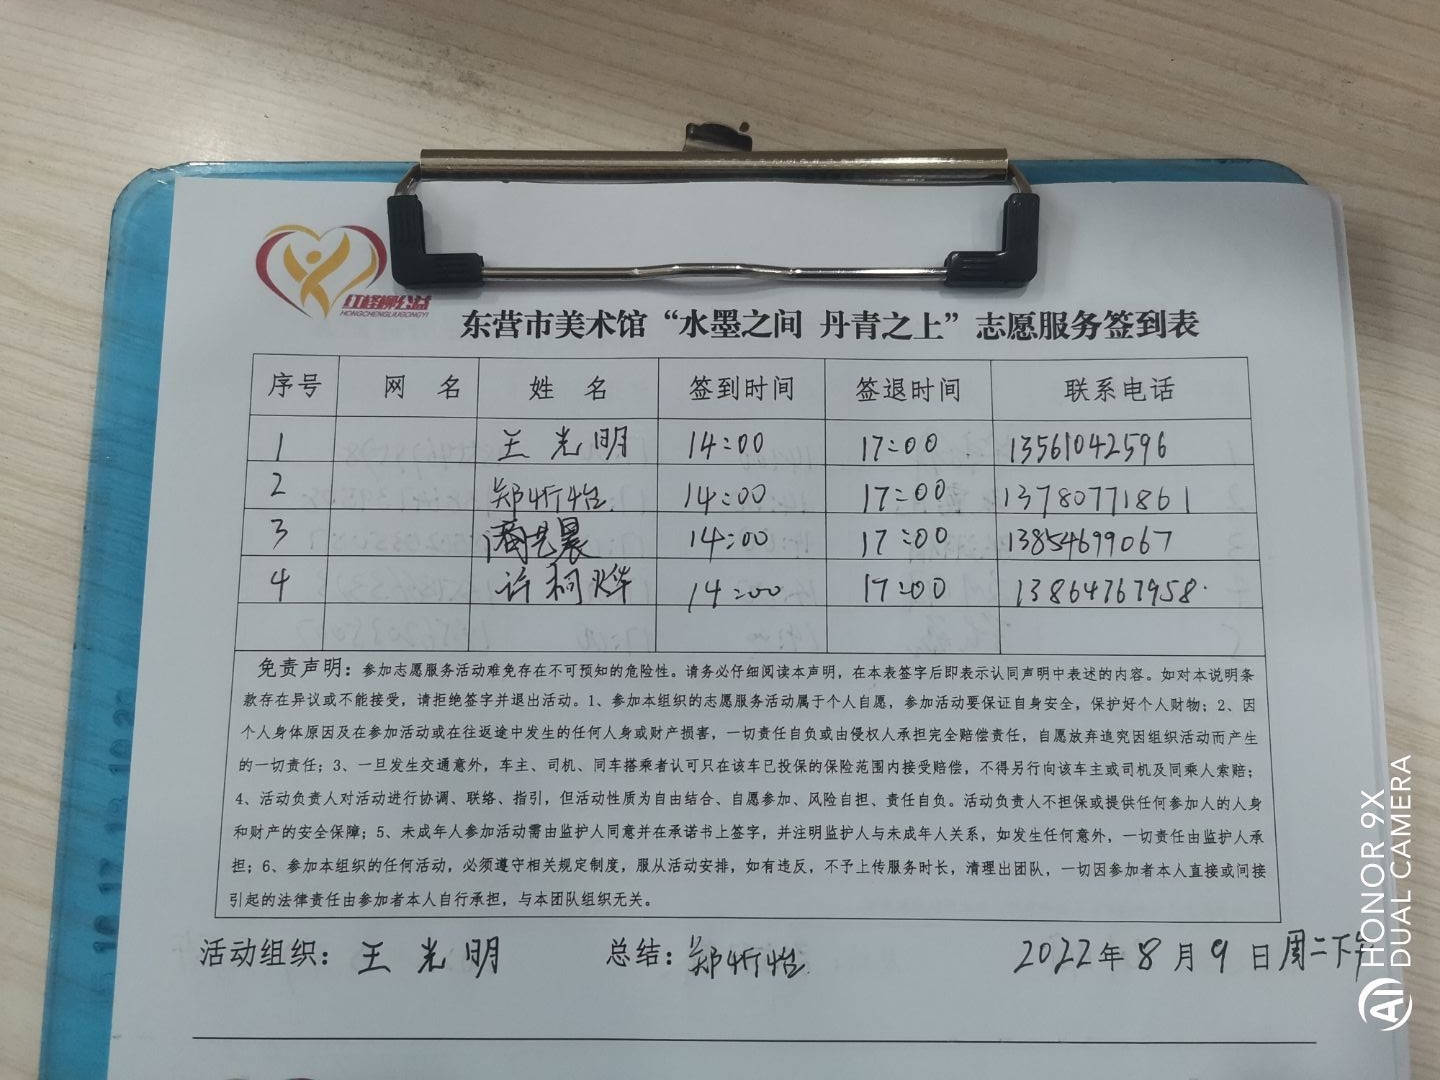 红柽柳公益
HONGCHENGLIUGONGYI
东营市美术馆“水墨之间 丹青之上”志愿服务签到表
序号 网 名 姓 名 签到时间 签退时间 联系电话
1 王光明 14:00 17:00 13561042596
2 郑忻怡 14:00 17:00 13780771861
3 14:00 17:00 13854699067
4 许柯烨 14:00 17:00 13864767958
免责声明：参加志愿服务活动难免存在不可预知的危险性。请务必仔细阅读本声明，在本表签字后即表示认同声明中表述的内容。如对本说明条
款存在异议或不能接受，请拒绝签字并退出活动。1、参加本组织的志愿服务活动属于个人自愿，参加活动要保证自身安全，保护好个人财物；2、因
个人身体原因及在参加活动或在往返途中发生的任何人身或财产损害，一切责任自负或由侵权人承担完全赔偿责任，自愿放弃追究因组织活动而产生
的一切责任；3、一旦发生交通意外，车主、司机、同车搭乘者认可只在该车已投保的保险范围内接受赔偿，不得另行向该车主或司机及同乘人索赔；
4、活动负责人对活动进行协调、联络、指引，但活动性质为自由结合、自愿参加、风险自担、责任自负。活动负责人不担保或提供任何参加人的人身
和财产的安全保障；5、未成年人参加活动需由监护人同意并在承诺书上签字，并注明监护人与未成年人关系，如发生任何意外，一切责任由监护人承
担；6、参加本组织的任何活动，必须遵守相关规定制度，服从活动安排，如有违反，不予上传服务时长，清理出团队，一切因参加者本人直接或间接
引起的法律责任由参加者本人自行承担，与本团队组织无关。
活动组织：王光明 总结：郑忻怡 2022年8月9日周二下午
HONOR 9X
AI DUAL CAMERA